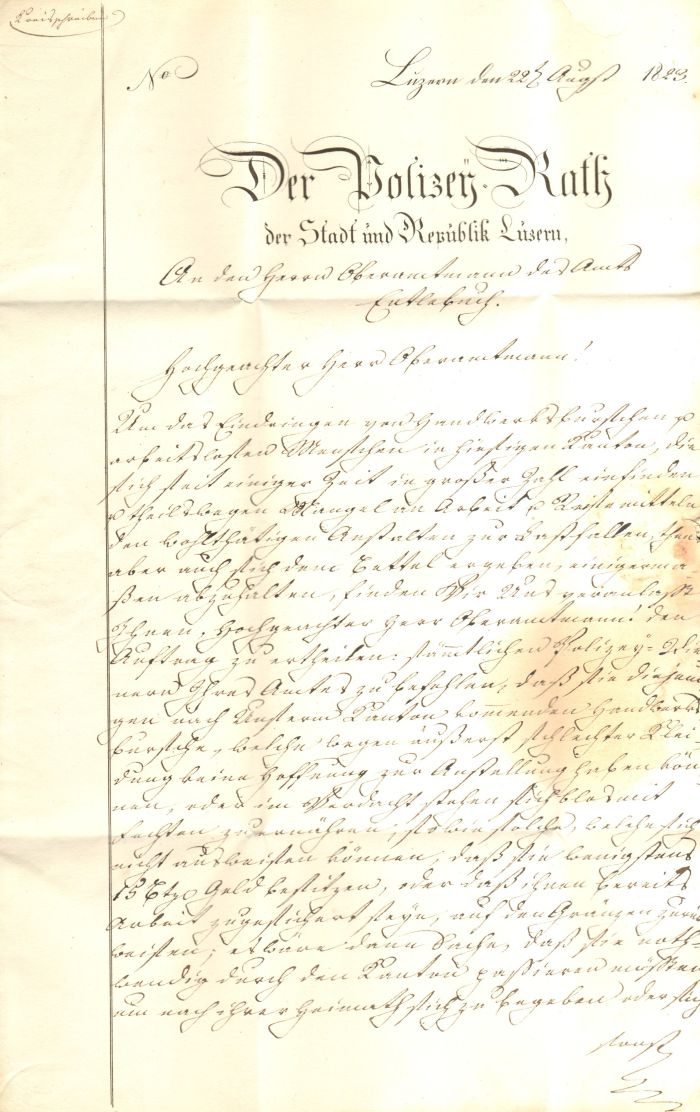 Kreisschreiben
No
Luzern den 22t Augst 1823.
Der Polizey-Rath
der Stadt und Republik Luzern,
An den Herrn Oberamtmann des Amts
Entlebuch.
Hochgeachter Herr Oberamtmann!
Um das Eindringen von Handwerksburschen u
arbeitslosen Menschen in hiesigen Kanton, die
sich seit einiger Zeit in großer Zahl einfinden
u theils wegen Mangel an Arbeit u Reisemitteln
den wohlthätigen Anstalten zur Last fallen, theils
aber auch sich dem Bettel ergeben, einigerma-
ßen abzuhalten, finden Wir Uns veranlaßt
Ihnen, Hochgeachter Herr Oberamtmann! den
Auftrag zu ertheilen: sämtlichen Polizey-Die
nern Ihres Amtes zu befehlen, daß sie diejeni
gen nach Unserm Kanton kommenden Handwerks
bursche, welche wegen äußerst schlechter Klei
dung keine Hoffnung zur Anstellung haben kön
nen, oder im Verdacht stehen sich blos mit
Fechten zu ernähren, so wie solche, welche sich
nicht ausweisen können, daß sie wenigstens
15 Btz Geld besitzen, oder daß ihnen bereits
Arbeit zugesichert seye, auf den Gränzen zurük
weisen; es wäre dann Sache, daß sie noth-
wendig durch den Kanton passieren müßten
um nach ihrer Heimath sich zu begeben oder sich
sonst